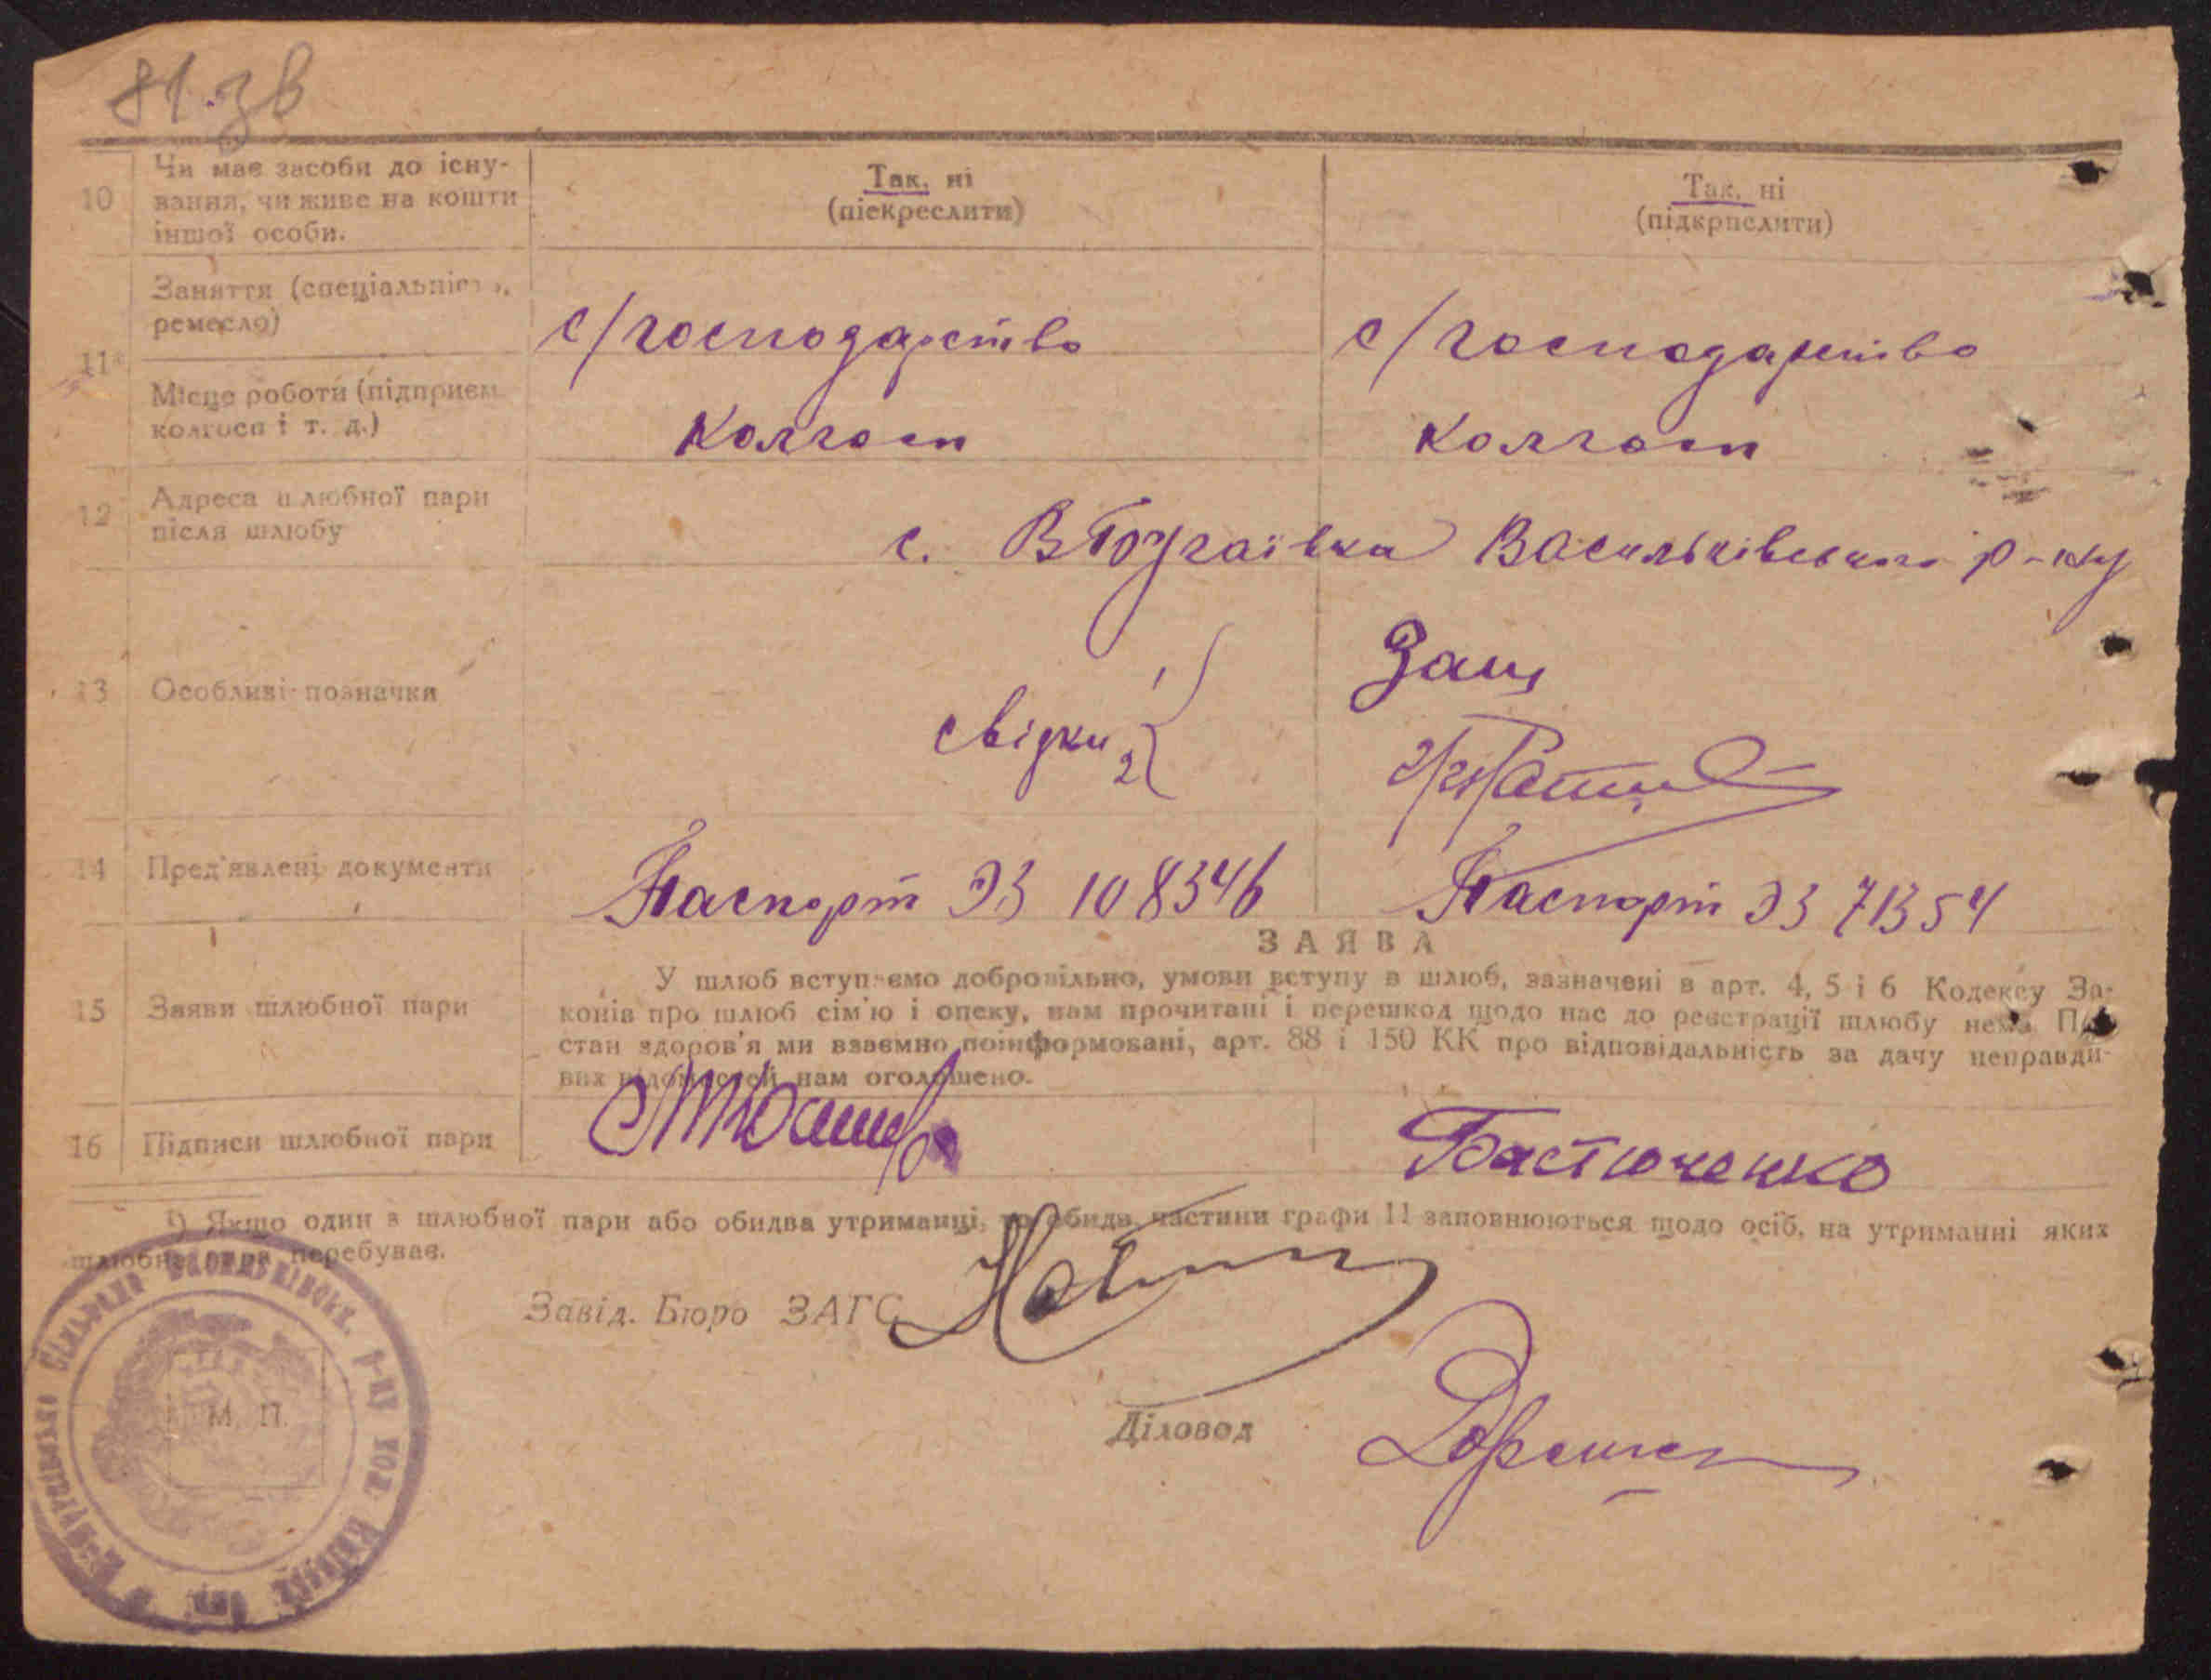 81.зв
10 Чи має засоби до існу-
вання, чи живе на кошти
іншої особи.
Так, ні
(піекреслити)
Так, ні
(підкрпслити)
11*
Заняття (спеціальніс
ремесло)
с/господарство
с/господарство
Місце роботи (підприєм
колгосп і т. д.)
Колгосп
Колгосп
12 Адреса шлюбної пари
після шлюбу
с. ВБугаївка Васильківського р-ну
13 Особливі позначки
свідки
1
2
Защ
14 Пред'явлені документи
Паспорт ЭЗ 108346
Паспорт ЭЗ 71354
ЗАЯВА
15 Заяви шлюбної пари
У шлюб вступаємо добровільно, умови вступу в шлюб, зазначені в арт. 4, 5 і 6 Кодексу За-
конів про шлюб сім'ю і опеку, нам прочитані і перешкод щодо нас до реєстрації шлюбу нема. П
стан здоров'я ми взаємно поінформовані, арт. 88 і 150 КК про відповідальність за дачу неправди-
вих відомостей нам оголошено.
16 Підписи шлюбної пари
Бастюченко
¹) Якщо один з шлюбної пари або обидва утриманці, то обидв. частини графи 11 заповнюються щодо осіб, на утриманні яких
шлюбна пара перебуває.
Завід. Бюро ЗАГС
Діловод
М. П.